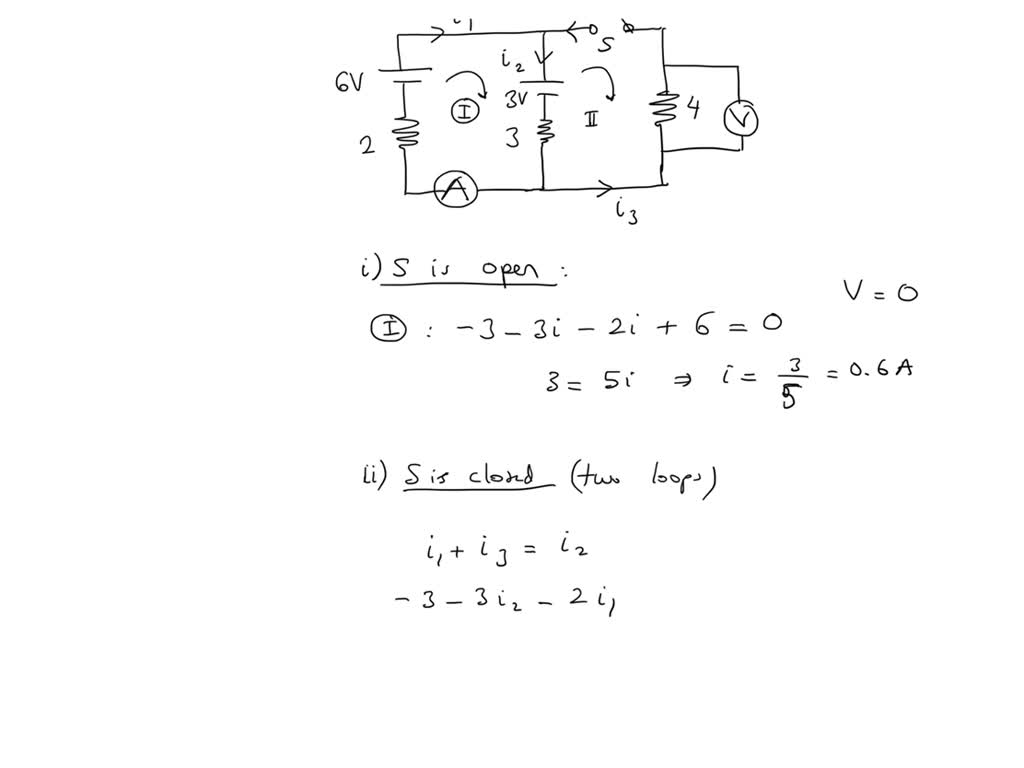 i1
S
i2
6V
I
3V
II
4
V
2
3
A
i3
i) S is open :
V = 0
I : -3 - 3i - 2i + 6 = 0
3 = 5i ⇒ i = 3/5 = 0.6 A
ii) S is closed (two loops)
i1 + i3 = i2
-3 - 3i2 - 2i1